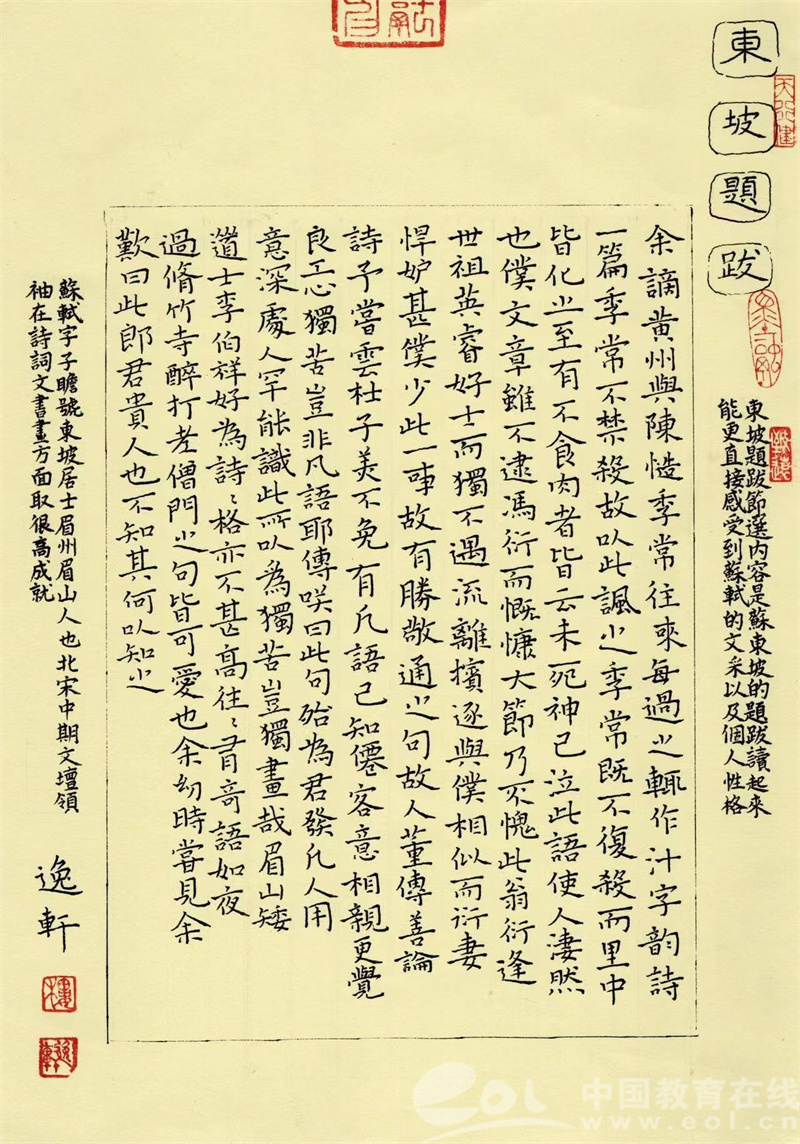 東坡題跋
東坡題跋節選内容是蘇東坡的題跋讀起來
能更直接感受到蘇軾的文采以及個人性格
余謫黄州與陳慥季常往來每過之輒作汁字韵詩
一篇季常不禁殺故以此諷之季常既不復殺而里中
皆化之至有不食肉者皆云未死神已泣此語使人淒然
也僕文章雖不逮馮衍而慨慷大節乃不愧此翁衍逢
世祖英睿好士而獨不遇流離擯逐與僕相似而衍妻
悍妒甚僕少此一事故有勝敬通之句故人董傳善論
詩予嘗雲杜子美不免有凡語已知僊客意相親更覺
良工心獨苦豈非凡語耶傳咲曰此句殆為君發凡人用
意深處人罕能識此所以為獨苦豈獨畫哉眉山矮
道士李伯祥好為詩詩格亦不甚高往往有奇語如夜
過脩竹寺醉打老僧門之句皆可愛也余幼時嘗見余
歎曰此郎君貴人也不知其何以知之
蘇軾字子瞻號東坡居士眉州眉山人也北宋中期文壇領
袖在詩詞文書畫方面取很高成就
逸軒
天行健
中国教育在线
www.eol.cn